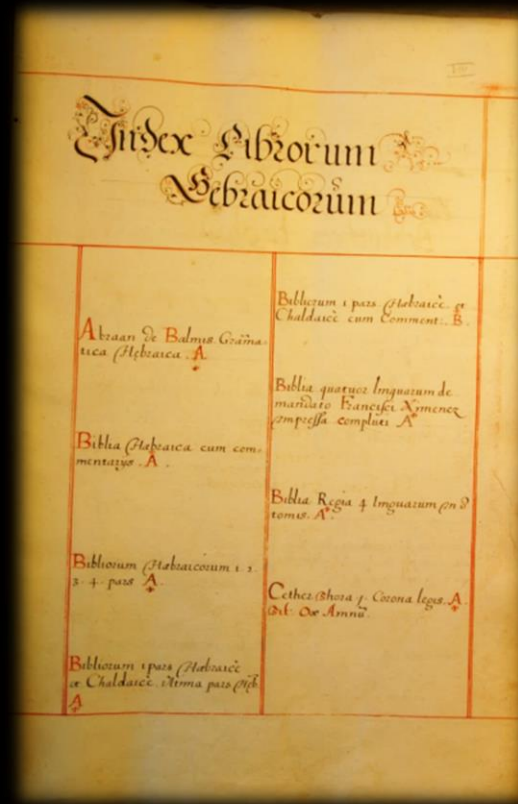 Index Librorum
Hebraicorum
Abraan de Balmis Grãma-
tica Hebraica. A
Biblia Hæbraica cum com-
mentarys. A.
Bibliorum Hæbraicorum 1. 2.
3. 4. pars A
Bibliorum 1 pars Hæbraicè
et Chaldaicè. pars Heb.
A
Bibliorum 1 pars Hæbraicè et
Chaldaicè cum Comment. B.
Biblia quatuor linguarum de
mandato Francisci Ximenez
impressa compluti A
Biblia Regia 4 linguarum in 8
tomis. A.
Cether thora j. Corona legis. A